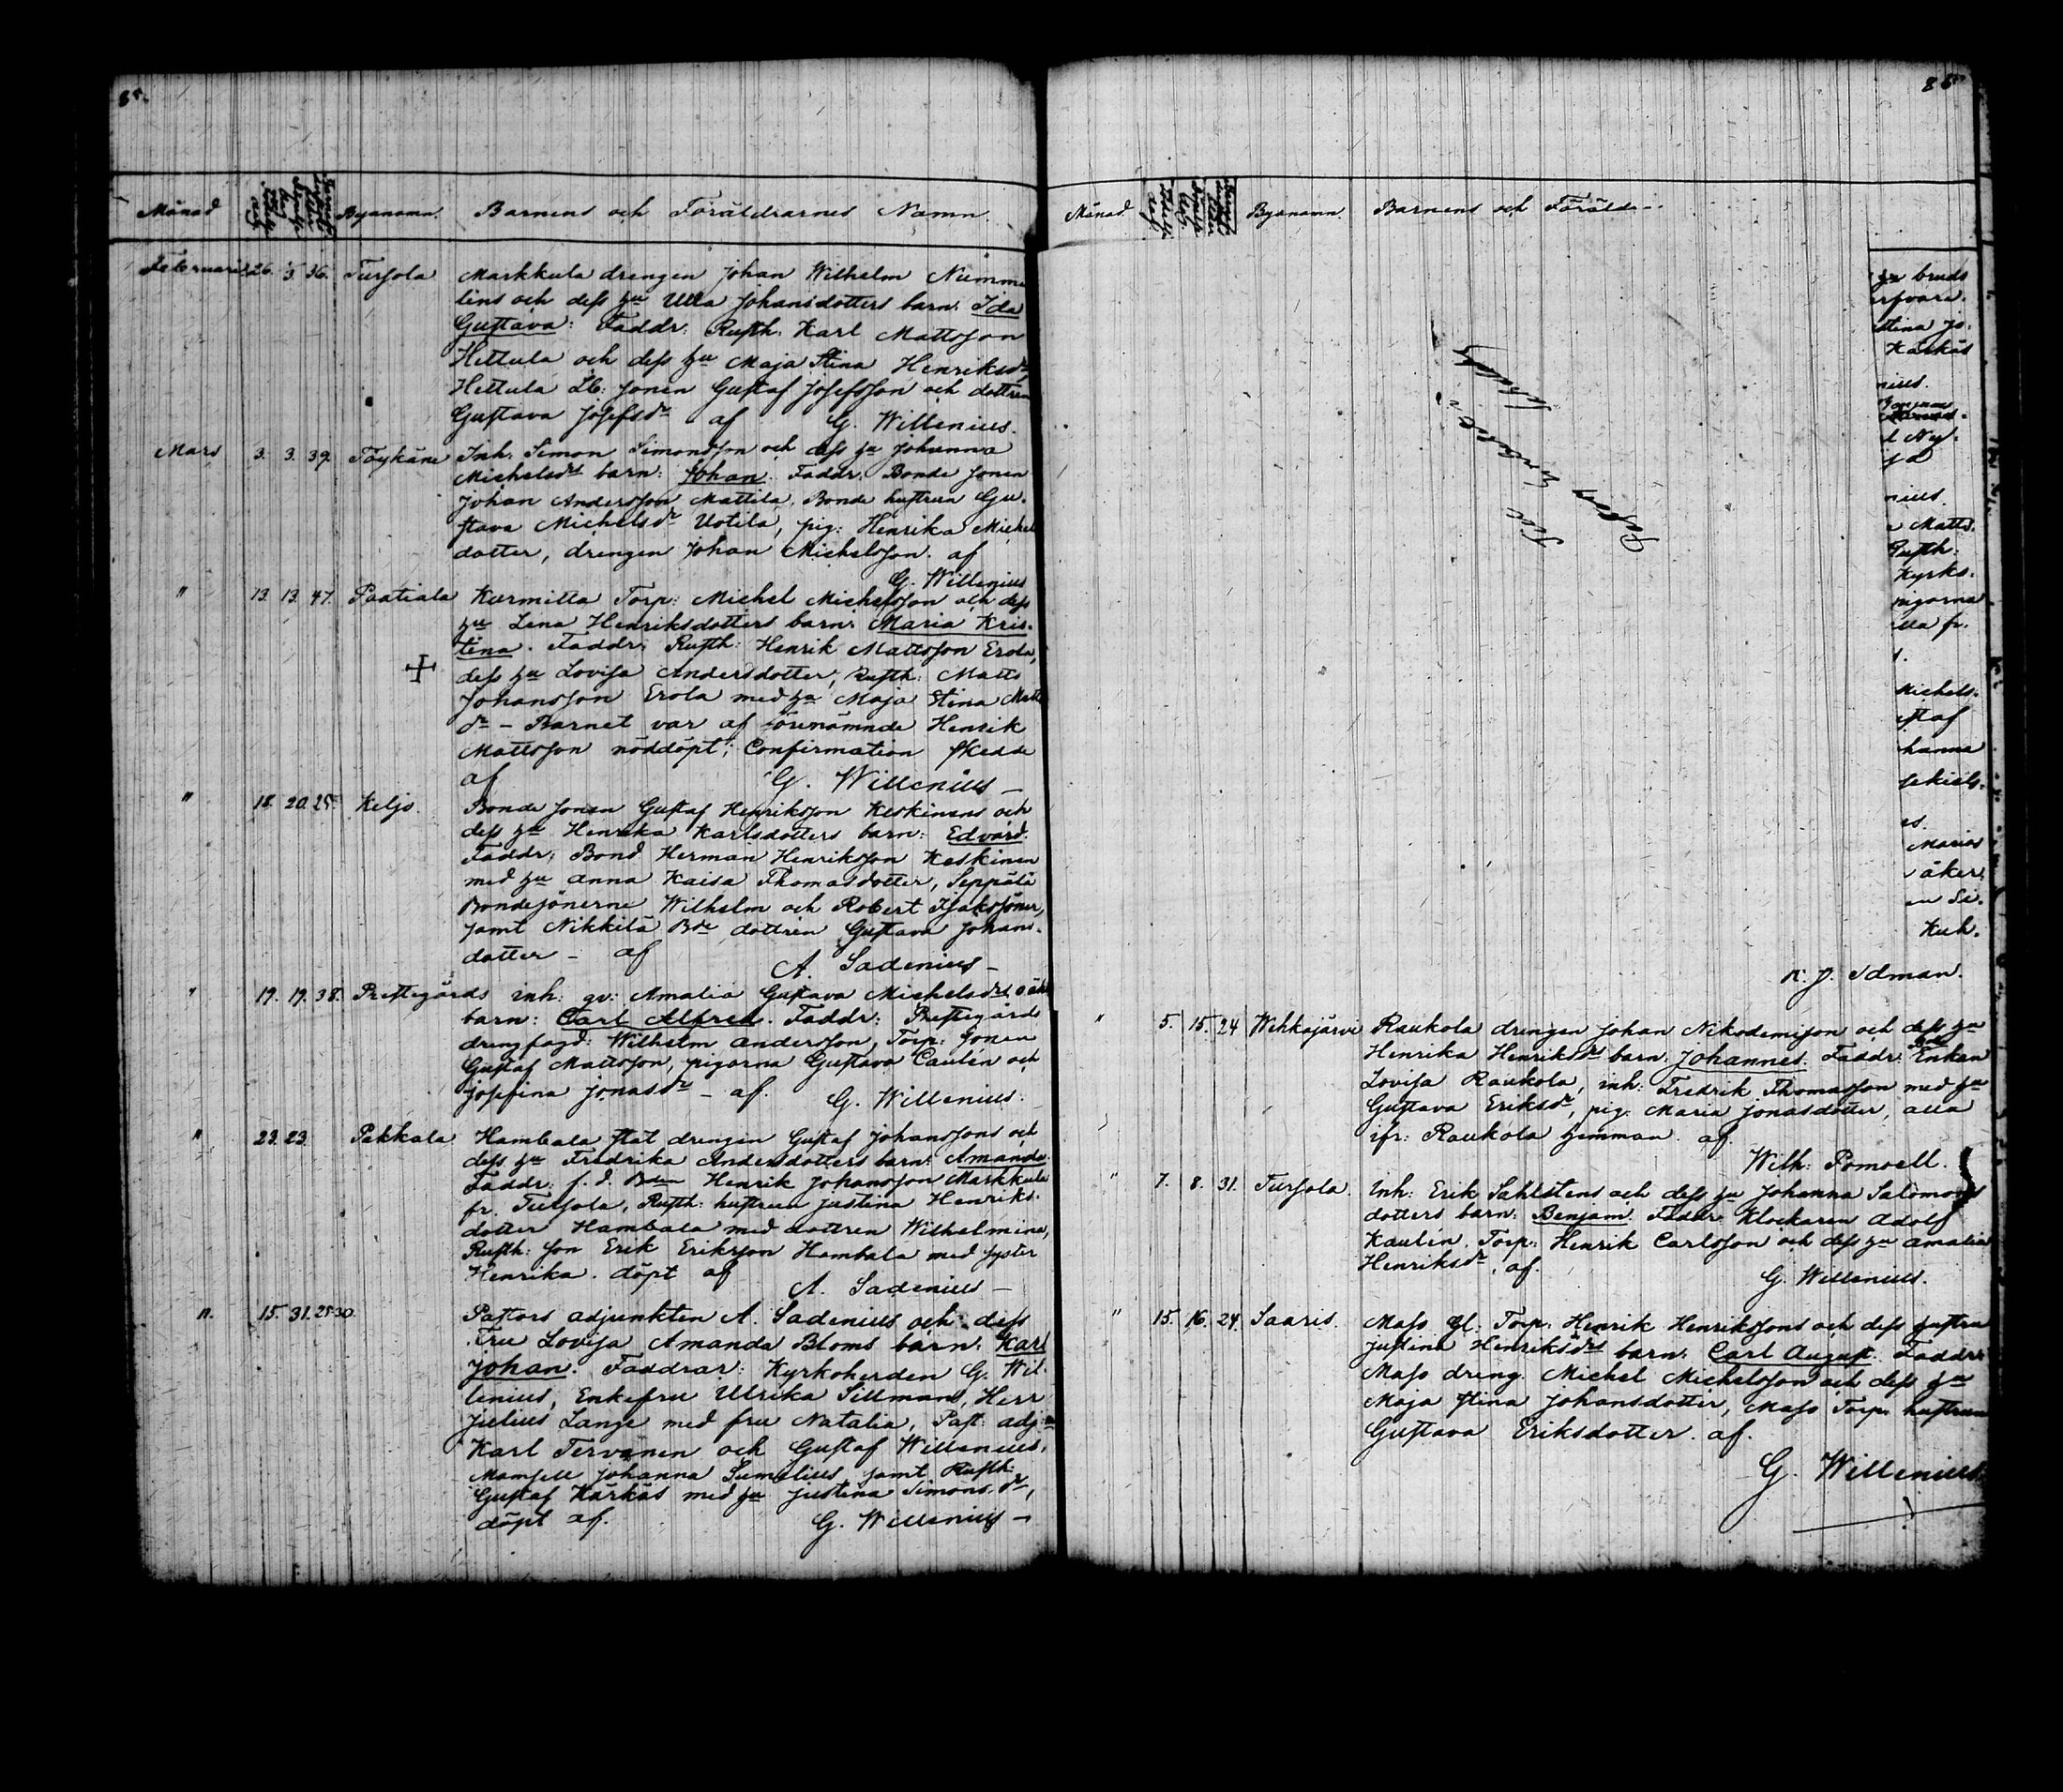 85.
Månad Byanamn. Barnens och Föräldrarnes Namn
Februari 26. 3. 36. Turſola Markkula drengen Johan Wilhelm Numme
lins och deſs hu Ulla Johansdotters barn: Ida
Guſtava: Faddr: Ruſth. Karl Mattsſon
Hettula och deſs hu Maja Stina Henriksdr,
Hettula Lb: ſonen Guſtaf Joſefsſon och dottren
Guſtava Joſefsdr af G. Willenius.
Mars 3. 3. 39. Töykäne Inh: Simon Simonsſon och deſs hu Johanna
Michelsdrs barn: Johan. Faddr: Bonde ſonen
Johan Andersſon Mattila, Bonde huſtrun Gu-
ſtava Michelsdr Uotila, pig: Henrika Michels
dotter, drengen Johan Michelsſon. af
G. Willenius
" 13. 13. 47. Paatiala Kurmilla Torp: Michel Michelsſon och deſs
hu Lena Henriksdotters barn: Maria Kris-
tina. Faddr: Ruſth: Henrik Mattsſon Erola,
deſs hu Loviſa Andersdotter, Ruſth: Matts
Johansſon Erola med hu Maja Stina Matts
dr – Barnet var af förenämnde Henrik
Mattsſon nöddöpt; Confirmation ſkedde
af G. Willenius –
" 18. 20. 25. Keljo. Bonde ſonen Guſtaf Henriksſon Keskinens och
deſs hu Henrika Karlsdotters barn: Edvard.
Faddr: Bond Herman Henriksſon Keskinen
med hu Anna Kaisa Thomasdotter, Seppälä
Bondeſönerne Wilhelm och Robert Iſaksſöner,
ſamt Nikkilä Bde dottren Guſtava Johans-
dotter – af A. Sadenius –
" 19. 19. 38. Preſtegårds inh: qv: Amalia Guſtava Michelsdrs oäkt
barn: Carl Alfred. Faddr: Preſtegårds
drengfogd: Wilhelm Andersſon, Torp: ſonen
Guſtaf Mattsſon, pigorna Guſtava Caulin och
Joſefina Jonasdr – af. G. Willenius.
" 23. 23. Pakkala Hambala ſtat drengen Guſtaf Johansſons och
deſs hu Fredrika Andersdotters barn: Amanda.
Faddr: f. d. Bden Henrik Johansſon Markkula
fr. Turſola, Ruſth: huſtrun Juſtina Henriks-
dotter Hambala med dottren Wilhelmina,
Ruſth: ſon Erik Eriksſon Hambala med ſyster
Henrika. döpt af A. Sadenius –
". 15. 31. 25 30. Paſtors adjunkten A. Sadenius och deſs
Fru Loviſa Amanda Bloms barn: Karl
Johan. Faddrar: Kyrkoherden G. Wil-
lenius, Enkefru Ulrika Sillman, Herr
Julius Lange med fru Natalia, Paſt: adj:
Karl Tervanen och Guſtaf Willenius,
Mamſell Johanna Sumelius ſamt Ruſth:
Guſtaf Kärkäs med hu Juſtina Simons. dr,
döpt af. G. Willenius –
85
Månad. Byanamn. Barnens och Föräld
hu bruds
stina Jo.
Kärkäs
nius.
d Ny.
ja
nius
a Matts.
Ruſth:
Kyrko.
pigorna
lla fr.
Michels.
ſtaf
hanna
ſekiels.
es.
Marias
åker
en Si.
Kuh.
K. J. Idman.
" 5. 15. 24 Wehkajärvi Raukola drengen Johan Nikodemiſon och deſs hu
Henrika Henriksdrs barn: Johannes: Faddr: Enkan
Loviſa Raukola, inh: Fredrik Thomasſon med hu
Guſtava Eriksdr, pig: Maria Jonasdotter, alla
ifr: Raukola hemman. af.
Wilh: Pomoell.
" 7. 8. 31. Turſola. Inh: Erik Sahlstens och deſs hu Johanna Salomons
dotters barn: Benjam. Faddr: Klockaren Adolf
Kaulin. Torp: Henrik Carlsſon och deſs hu Amalia
Henriksdr, af. G. Willenius.
" 15. 16. 24. Saaris. Maſs gl. Torp: Henrik Henriksſons och deſs huſtru
Juſtina Henriksdrs barn: Carl Auguſt. Faddr:
Maſs dreng. Michel Michelsſon och deſs hu
Maja ſtina Johansdotter, Maſs Torp: huſtrun
Guſtava Eriksdotter. af.
G. Willenius.